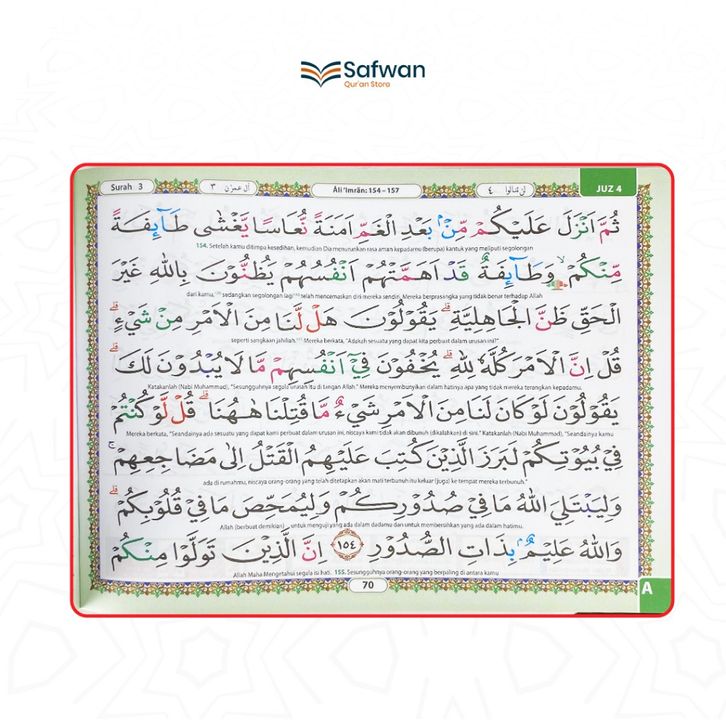 Safwan
Qur'an Store
Surah 3
٣ اٰل عمرٰن
Āli ‘Imrān: 154 – 157
لن تنالوا ٤
JUZ 4
ثُمَّ اَنْزَلَ عَلَيْكُمْ مِّنْۢ بَعْدِ الْغَمِّ اَمَنَةً نُّعَاسًا يَّغْشٰى طَاۤىِٕفَةً
154. Setelah kamu ditimpa kesedihan, kemudian Dia menurunkan rasa aman kepadamu (berupa) kantuk yang meliputi segolongan
مِّنْكُمْۙ وَطَاۤىِٕفَةٌ قَدْ اَهَمَّتْهُمْ اَنْفُسُهُمْ يَظُنُّوْنَ بِاللّٰهِ غَيْرَ
dari kamu, sedangkan segolongan lagi telah mencemaskan diri mereka sendiri. Mereka berprasangka yang tidak benar terhadap Allah
الْحَقِّ ظَنَّ الْجَاهِلِيَّةِۗ يَقُوْلُوْنَ هَلْ لَّنَا مِنَ الْاَمْرِ مِنْ شَيْءٍۗ
seperti sangkaan jahiliah. Mereka berkata, "Adakah sesuatu yang dapat kita perbuat dalam urusan ini?"
قُلْ اِنَّ الْاَمْرَ كُلَّهٗ لِلّٰهِۗ يُخْفُوْنَ فِيْٓ اَنْفُسِهِمْ مَّا لَا يُبْدُوْنَ لَكَۗ
Katakanlah (Nabi Muhammad), "Sesungguhnya segala urusan itu di tangan Allah." Mereka menyembunyikan dalam hatinya apa yang tidak mereka terangkan kepadamu.
يَقُوْلُوْنَ لَوْ كَانَ لَنَا مِنَ الْاَمْرِ شَيْءٌ مَّا قُتِلْنَا هٰهُنَاۗ قُلْ لَّوْ كُنْتُمْ
Mereka berkata, "Seandainya ada sesuatu yang dapat kami perbuat dalam urusan ini, niscaya kami tidak akan dibunuh (dikalahkan) di sini." Katakanlah (Nabi Muhammad), "Seandainya kamu
فِيْ بُيُوْتِكُمْ لَبَرَزَ الَّذِيْنَ كُتِبَ عَلَيْهِمُ الْقَتْلُ اِلٰى مَضَاجِعِهِمْۚ
ada di rumahmu, niscaya orang-orang yang telah ditetapkan akan mati terbunuh itu keluar (juga) ke tempat mereka terbunuh."
وَلِيَبْتَلِيَ اللّٰهُ مَا فِيْ صُدُوْرِكُمْ وَلِيُمَحِّصَ مَا فِيْ قُلُوْبِكُمْۗ
Allah (berbuat demikian) untuk menguji yang ada dalam dadamu dan untuk membersihkan yang ada dalam hatimu.
وَاللّٰهُ عَلِيْمٌۢ بِذَاتِ الصُّدُوْرِ ١٥٤ اِنَّ الَّذِيْنَ تَوَلَّوْا مِنْكُمْ
Allah Maha Mengetahui segala isi hati. 155. Sesungguhnya orang-orang yang berpaling di antara kamu
70
A